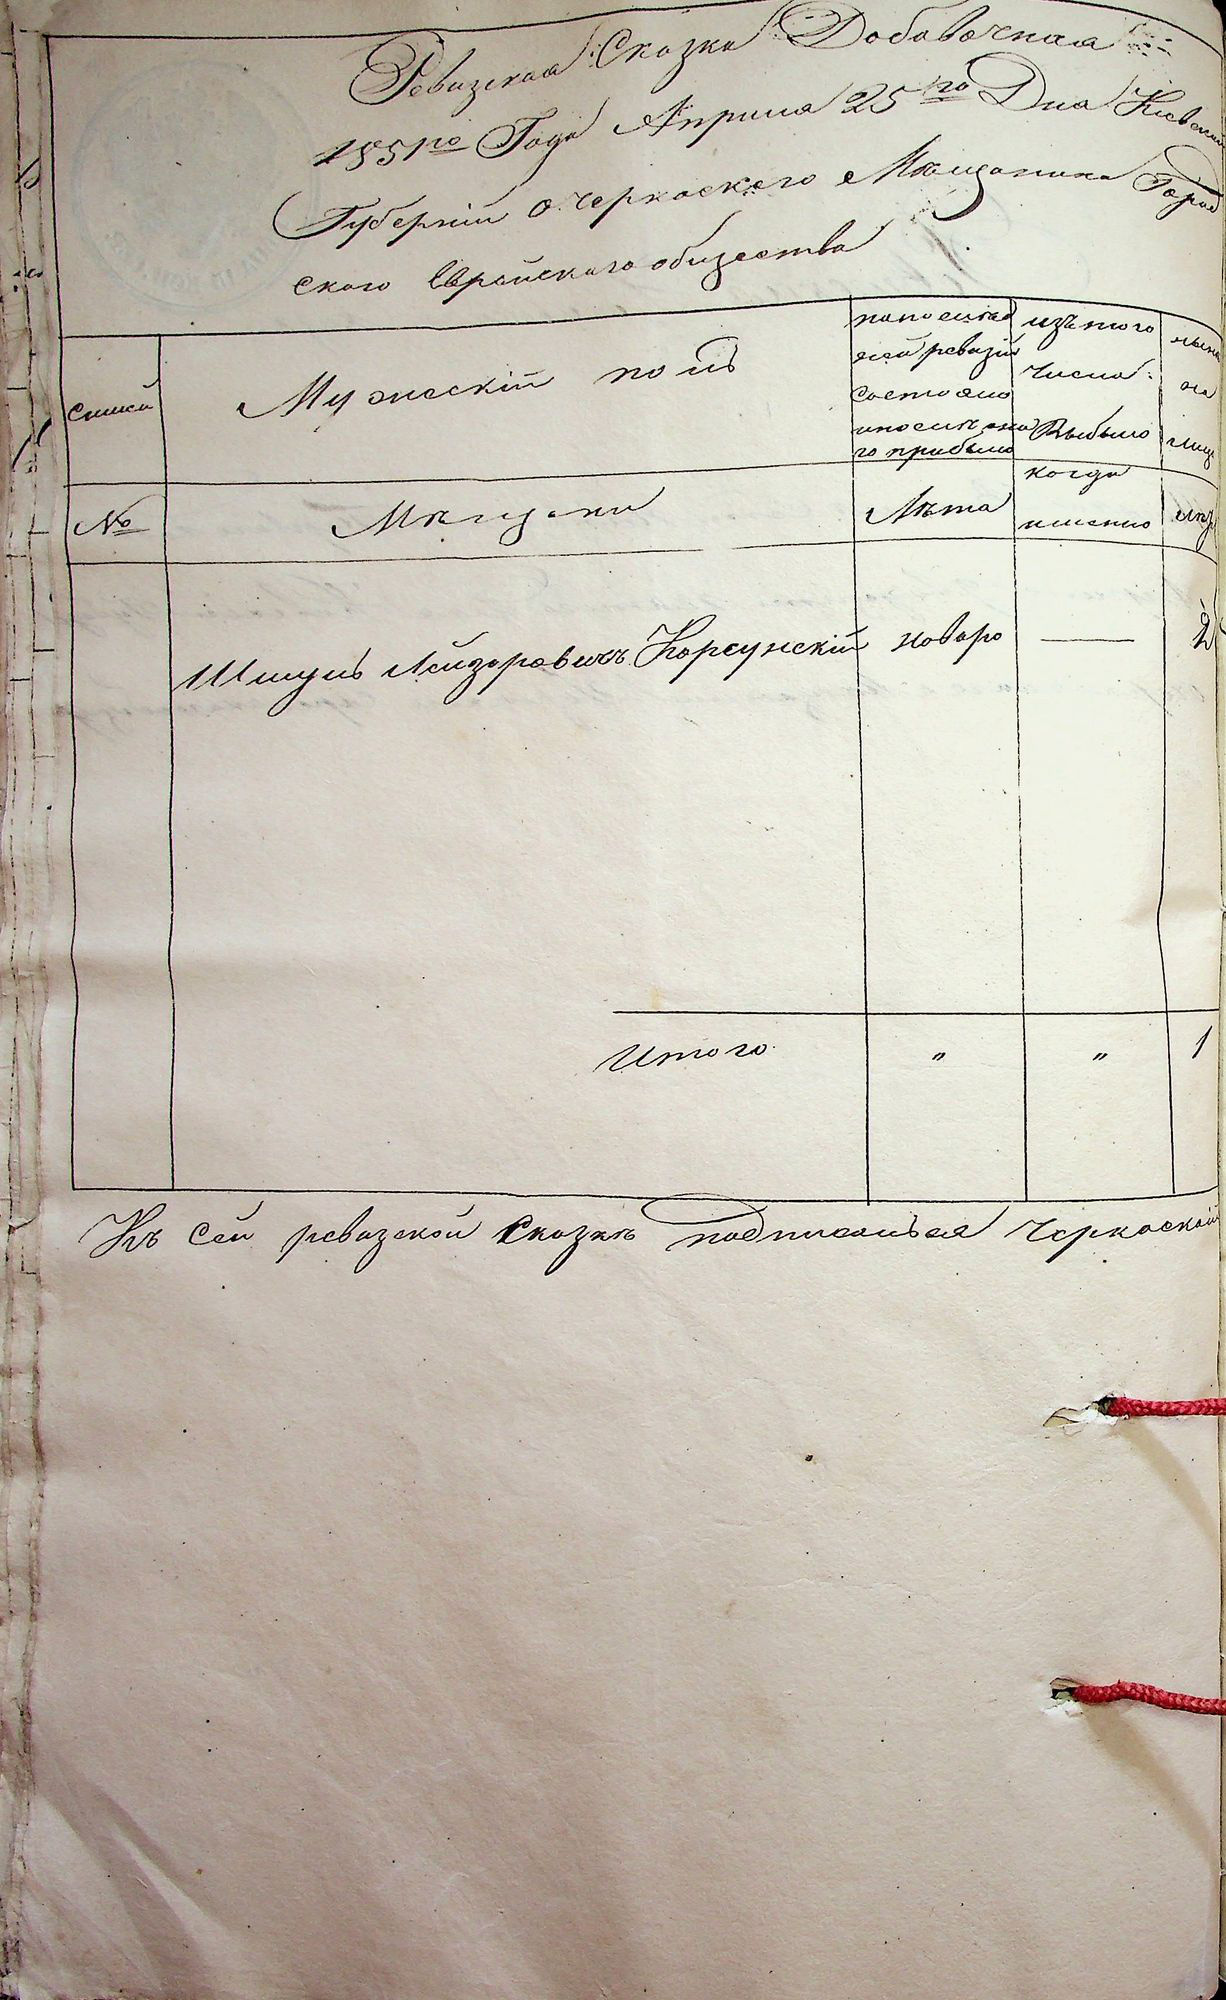 Ревизская Сказка Добавочная
1851го Года Априля 25го Дня Кіевской
Губерніи о черкаского Мѣщанина Город
ского Еврейского общества
Мужескій полъ
попослѣд
ней ревизіи
состояло
ипослѣ она
го прибыло
изътого
числа
Выбыло
нынѣ
на
лицо
списка
№
Мѣщани
Лѣта
когда
именно
лѣта
Шмуль Лейзоровичъ Корсунскій новоро —— 2
Итого " " 1
Къ сей ревизской Сказкѣ подписался черкаской